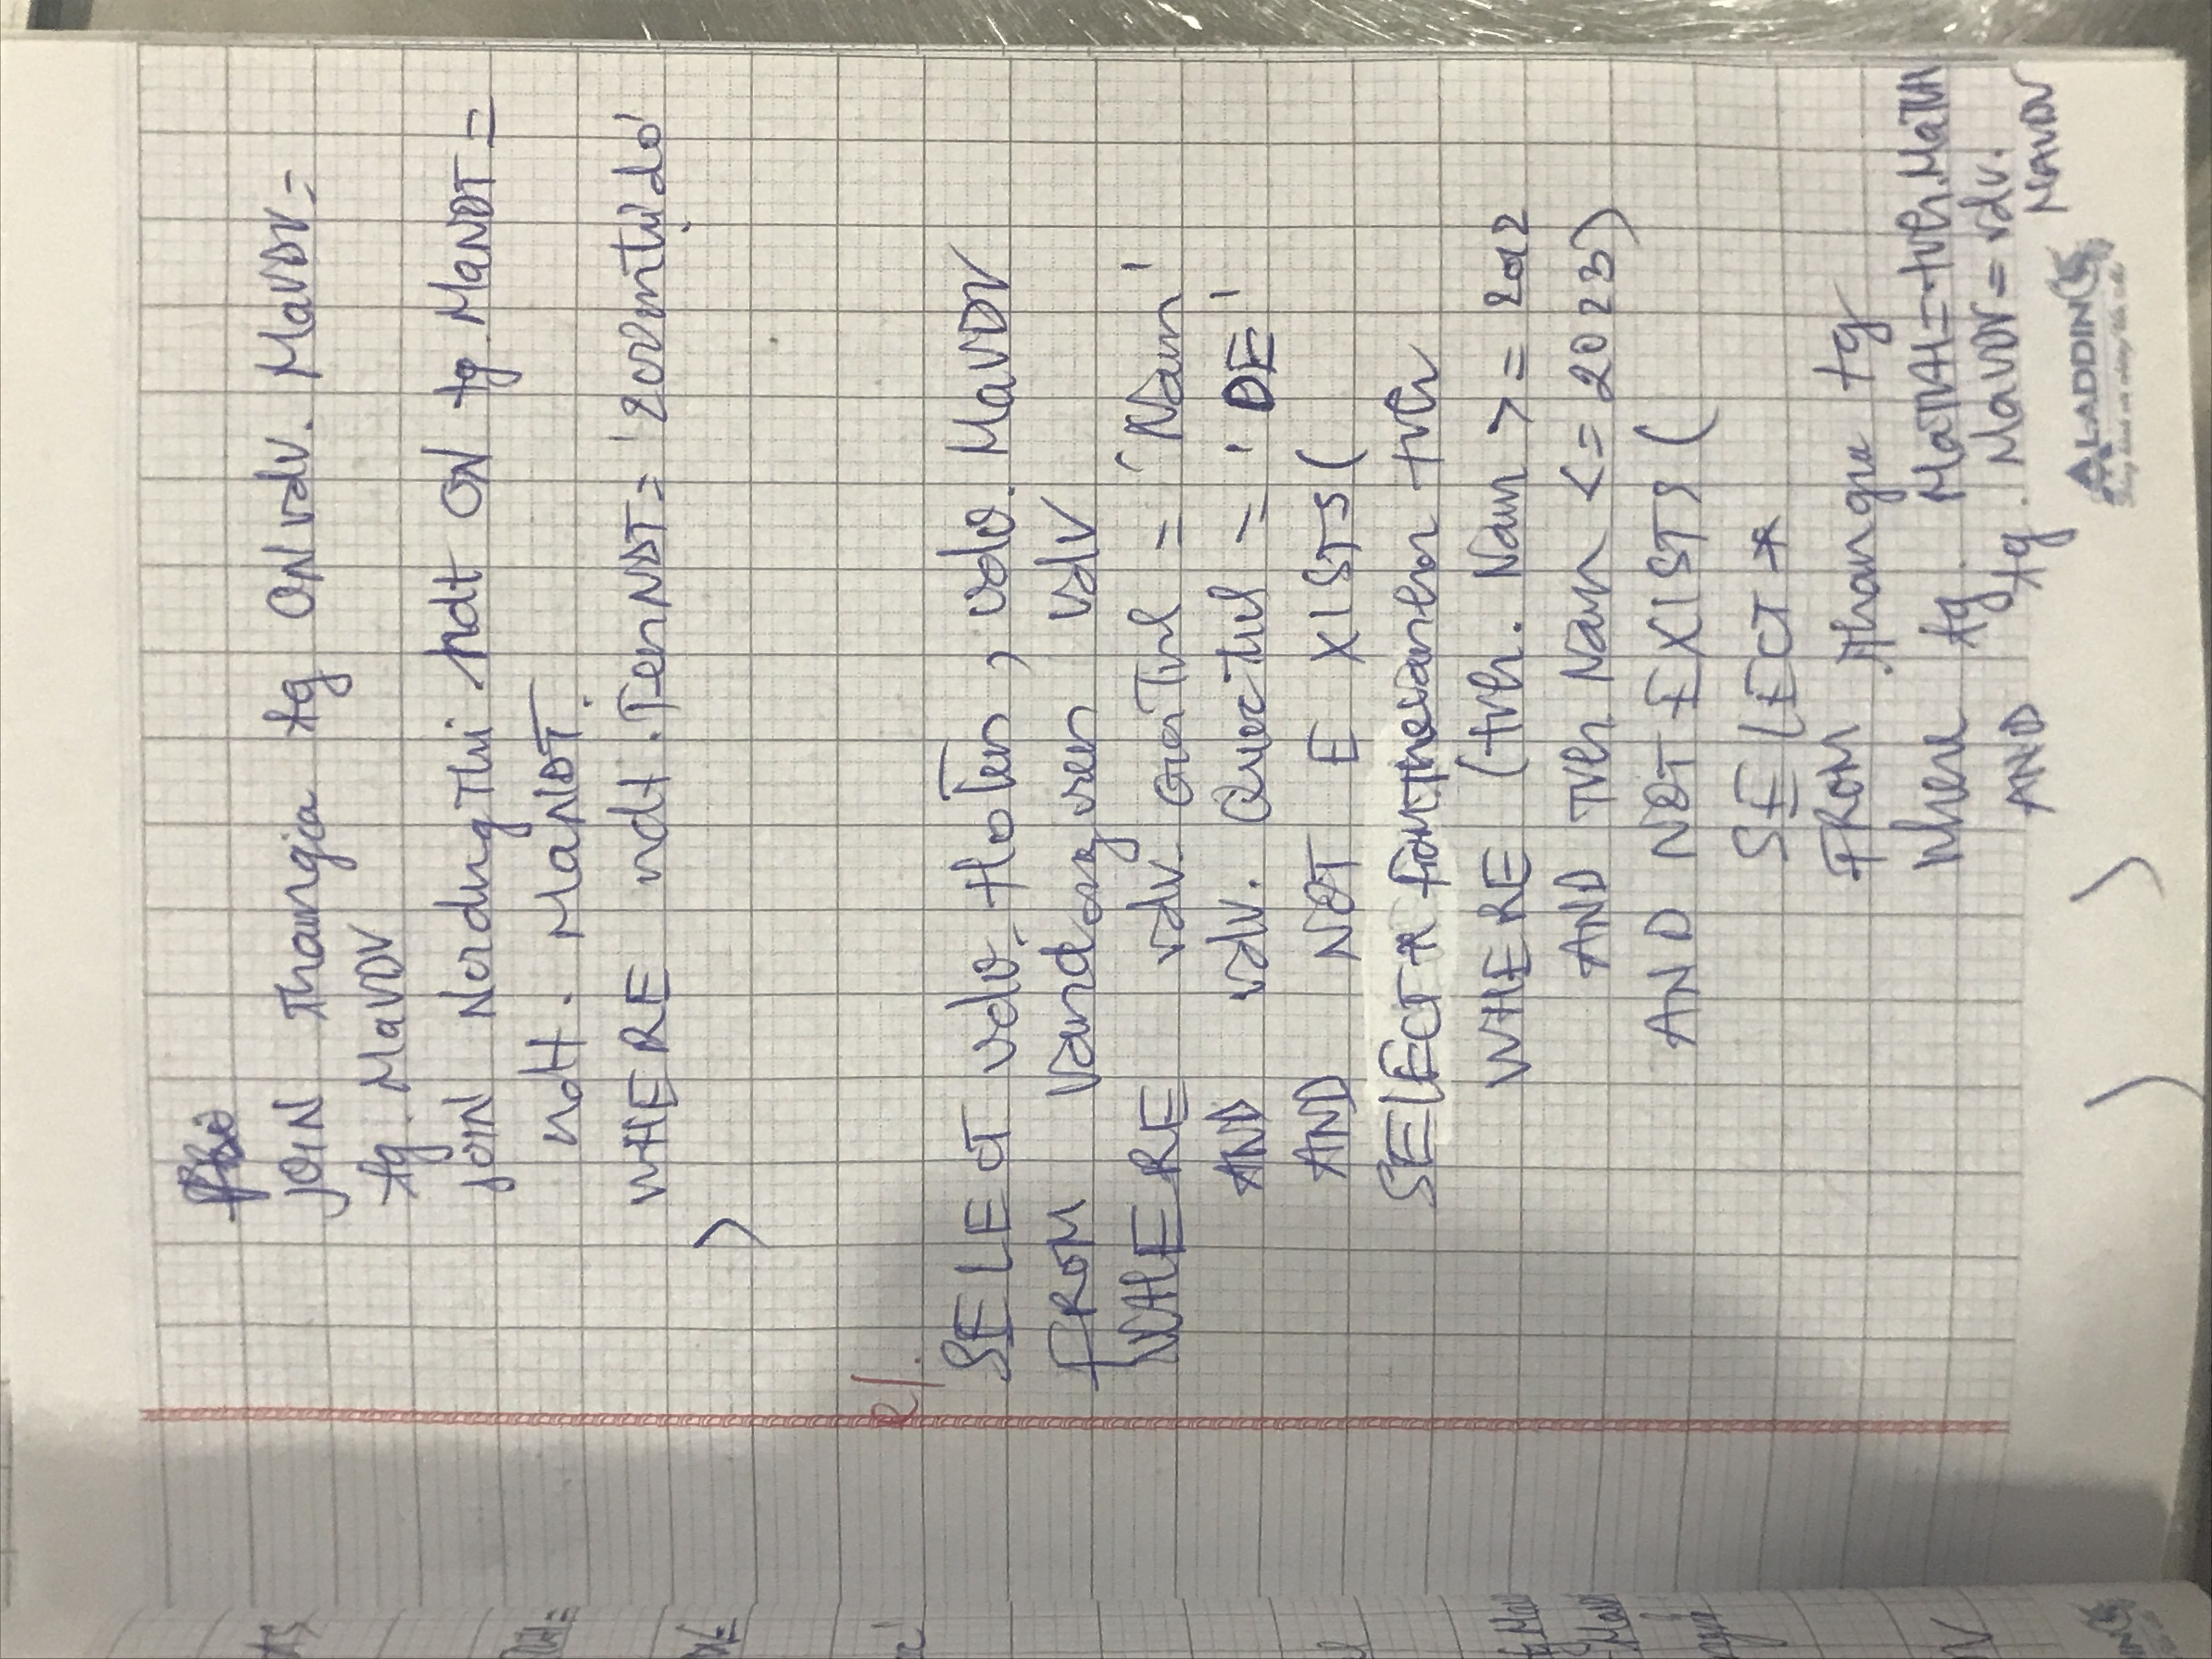 JOIN Thamgia tg ON vdv. MaVDV =
tg. MaVDV
JOIN NoidungThi ndt ON tg. MaNDT =
ndt. MaNDT.
WHERE ndt. TenNDT = '200m tự do'
)
e/.
SELECT vdv. HoTen, vdv. MaVDV
FROM Vandongvien vdv
WHERE vdv. GioiTinh = 'Nam'
AND vdv. QuocTich = 'DE'
AND NOT EXISTS (
SELECT * from Thevanhoi tvh
WHERE (tvh. Nam >= 2012
AND Tvh Nam <= 2023)
AND NOT EXISTS (
SELECT *
FROM Thamgia tg
Where tg. MaTVH = tvh. MaTVH
AND tg. MaVDV = vdv.
MAVDV
) )
ALADDIN